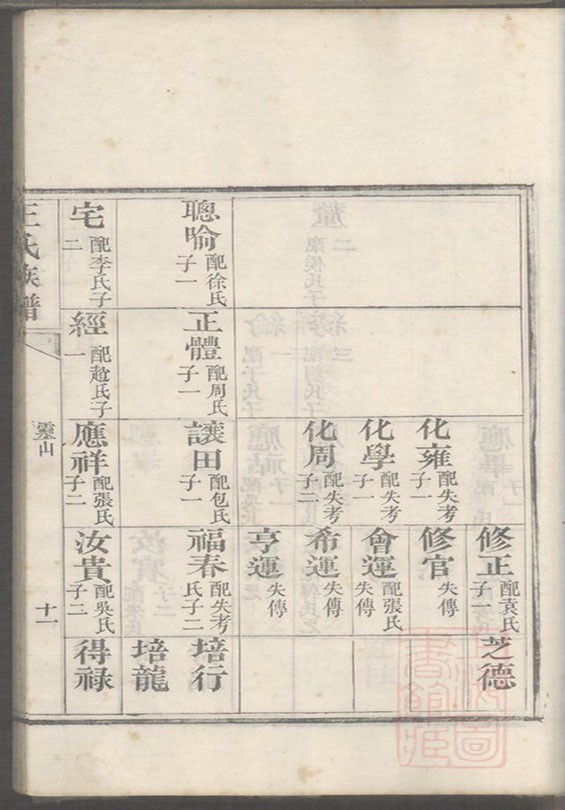 聰喻 配徐氏 子一
宅 配李氏子 二
正體 配周氏 子一
經 配趙氏子 一
化雍 配失考 子一
化學 配失考 子一
化周 配失考 子二
讓田 配包氏 子一
應祥 配張氏 子二
修正 配袁氏 子一
修官 失傳
會運 配張氏 失傳
希運 失傳
亨運 失傳
福春 配失考 氏子二
汝貴 配吳氏 子二
芝德
培行
培龍
得祿
王氏族譜
靈山
十一